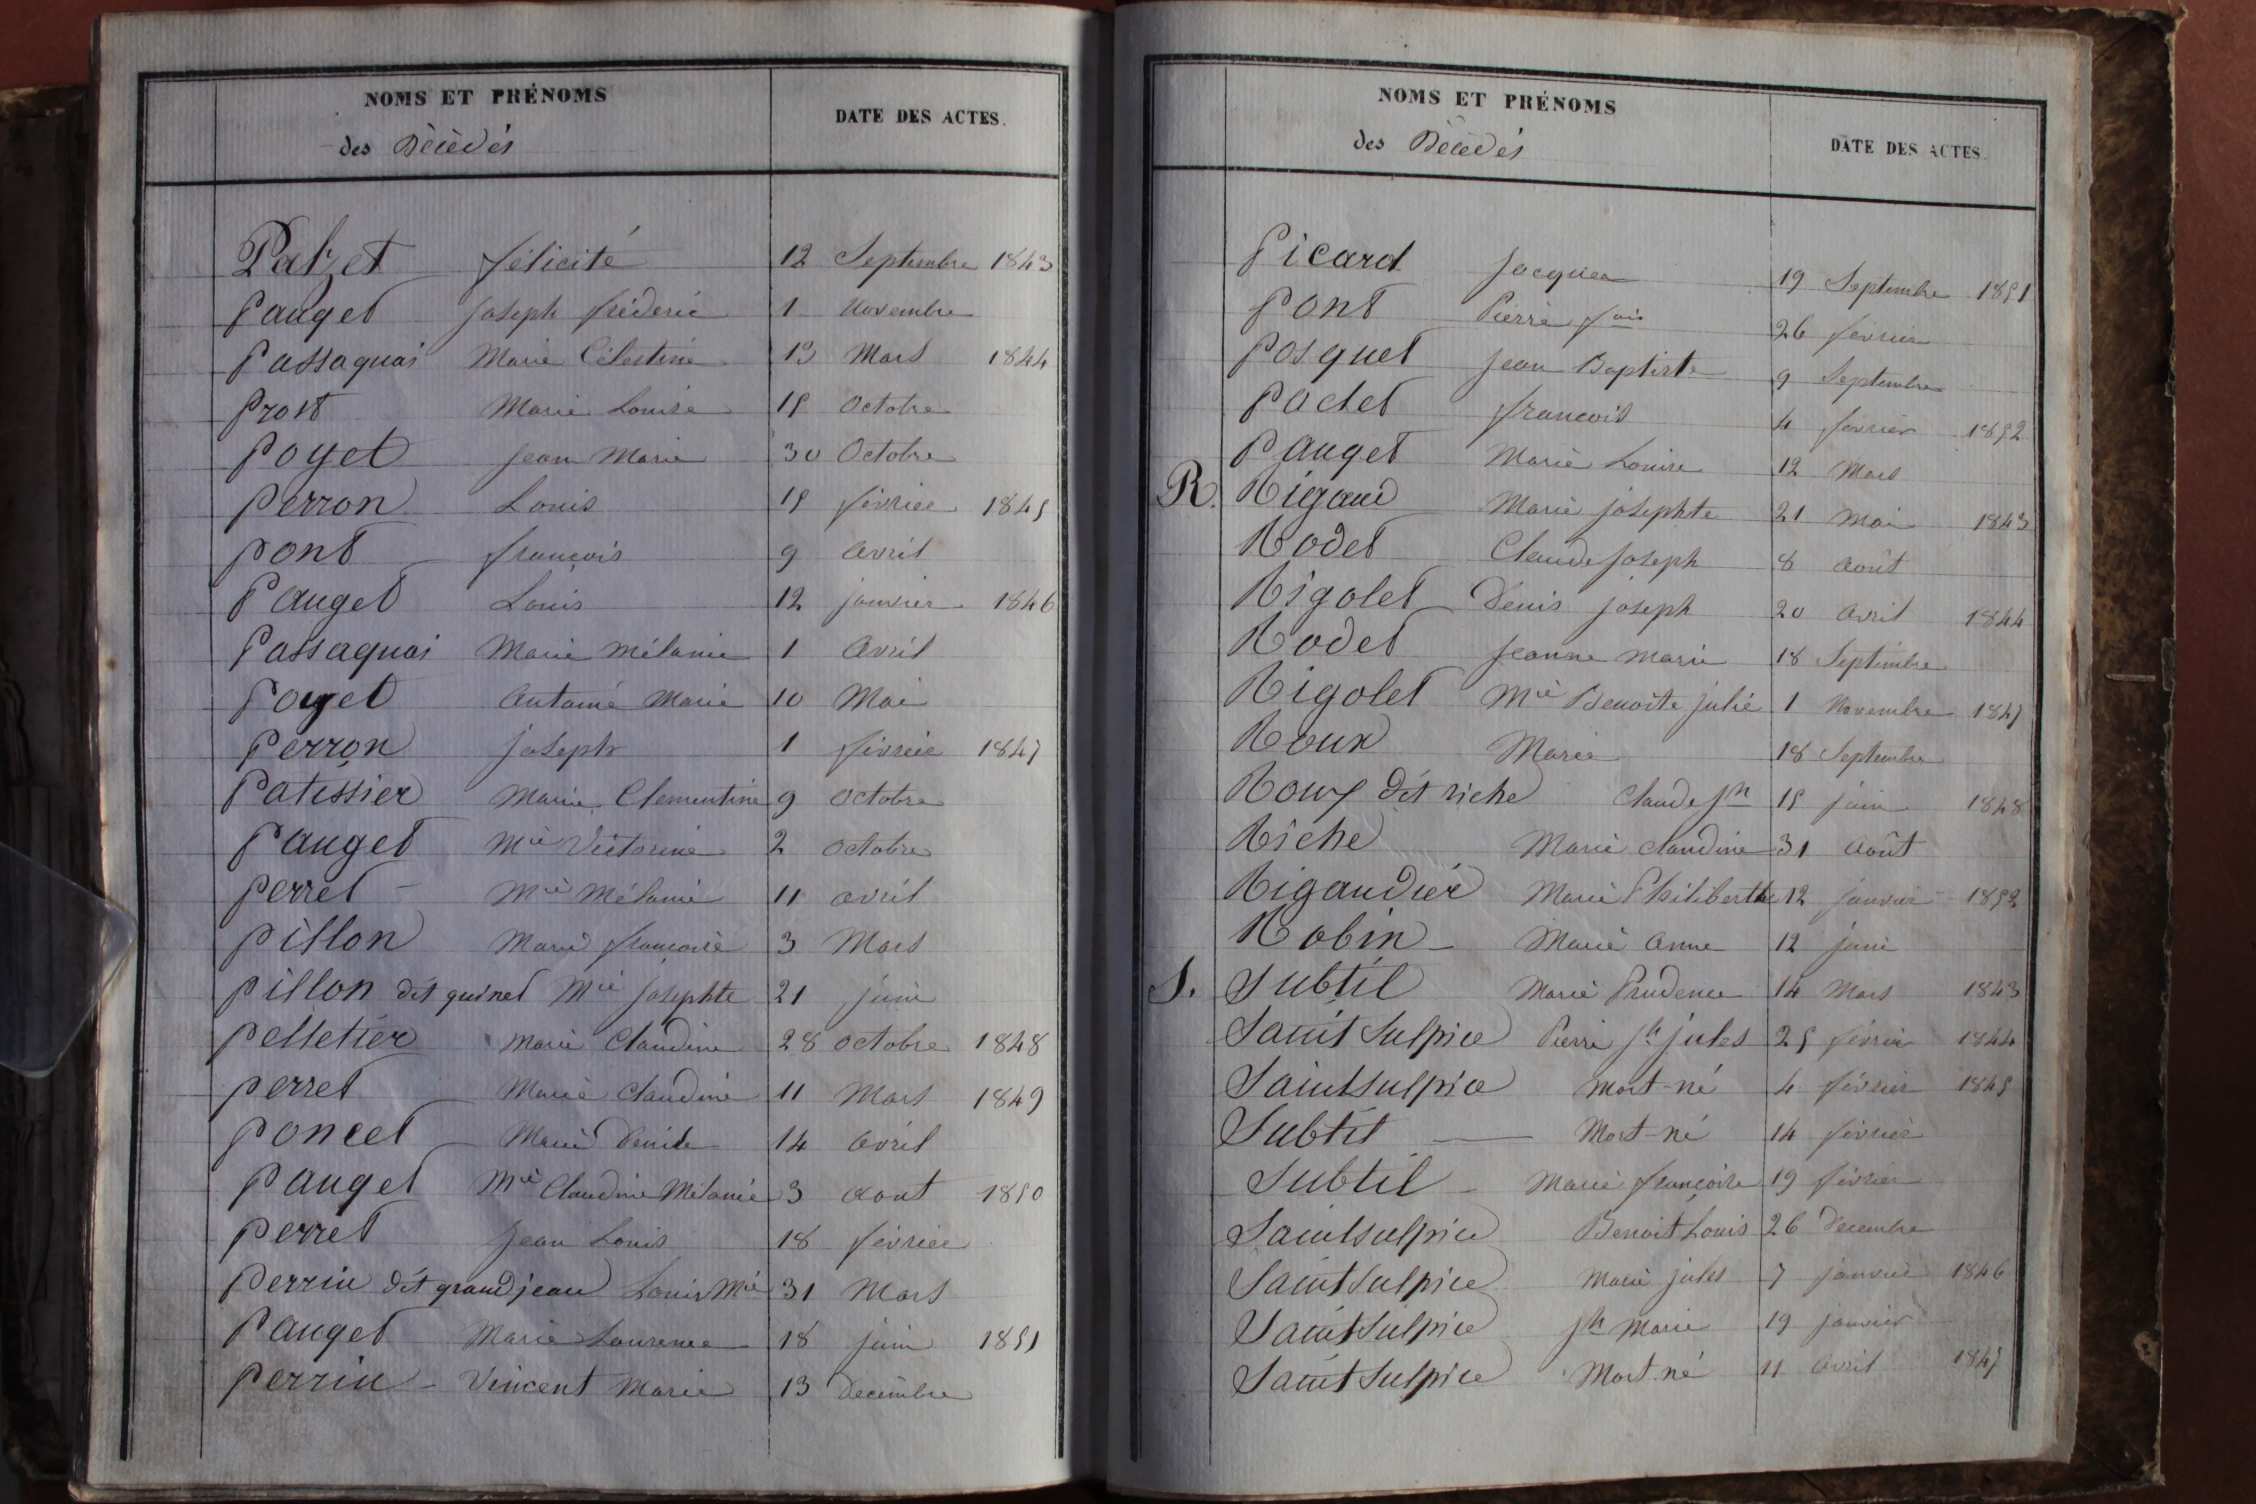 NOMS ET PRÉNOMS
des Décédés
DATE DES ACTES.
Patzet Félicité 12 Septembre 1843
Pauget Joseph Fréderic 1 Novembre
Passaquai Marie Célestine 13 Mars 1844
Prost Marie Louise 15 Octobre
Poyet Jean Marie 30 Octobre
Perron Louis 15 février 1845
Pont françois 9 avril
Pauget Louis 12 janvier 1846
Passaquai Marie Mélanie 1 Avril
Poyet Antoine Marie 10 Mai
Perron Joseph 1 février 1847
Patissier Marie Clementine 9 octobre
Pauget Mie Victorine 2 octobre
Perret Mie Mélanie 11 avril
Pillon Marie françoise 3 Mars
Pillon dit quinet Mie Josephte 21 juin
Pelletier Marie Claudine 28 octobre 1848
Perret Marie Claudine 11 Mars 1849
Poncet Marie Denise 14 avril
Pauget Mie Claudine Mélanie 3 aout 1850
Perret Jean Louis 18 février
Perrin dit grandjean Louis Mie 31 Mars
Pauget Marie Laurence 18 juin 1851
Perrin Vincent Marie 13 Decembre
NOMS ET PRÉNOMS
des Décédés
DATE DES ACTES.
Picard Jacques 19 Septembre 1851
Pont Pierre fois 26 fevrier
Posquet Jean Baptiste 9 Septembre
Pochet françois 4 février 1852
Pauget Marie Louise 12 Mars
R. Rigaud Marie josephte 21 Mai 1843
Rodet Claude Joseph 8 août
Rigolet Denis joseph 20 avril 1844
Rodet Jeanne Marie 18 Septembre
Rigolet Mie Benoîte julie 1 Novembre 1847
Roux Marie 18 Septembre
Roux dit riche Claude Jh 15 juin 1848
Riche Marie Claudine 31 août
Rigaudier Marie Philiberthe 12 janvier 1852
Robin Marie Anne 12 juin
S. Subtil Marie Prudence 14 Mars 1843
Saint Sulpice Pierre Jh jules 25 février 1844
Saintsulpice Mort-né 4 février 1845
Subtil Mort-né 14 février
Subtil Marie françoise 19 février
Saintsulpice Benoit Louis 26 Decembre
Saint Sulpice Marie jules 7 janvier 1846
Saint Sulpice Jh Marie 19 janvier
Saint Sulpice Mort-né 11 avril 1847